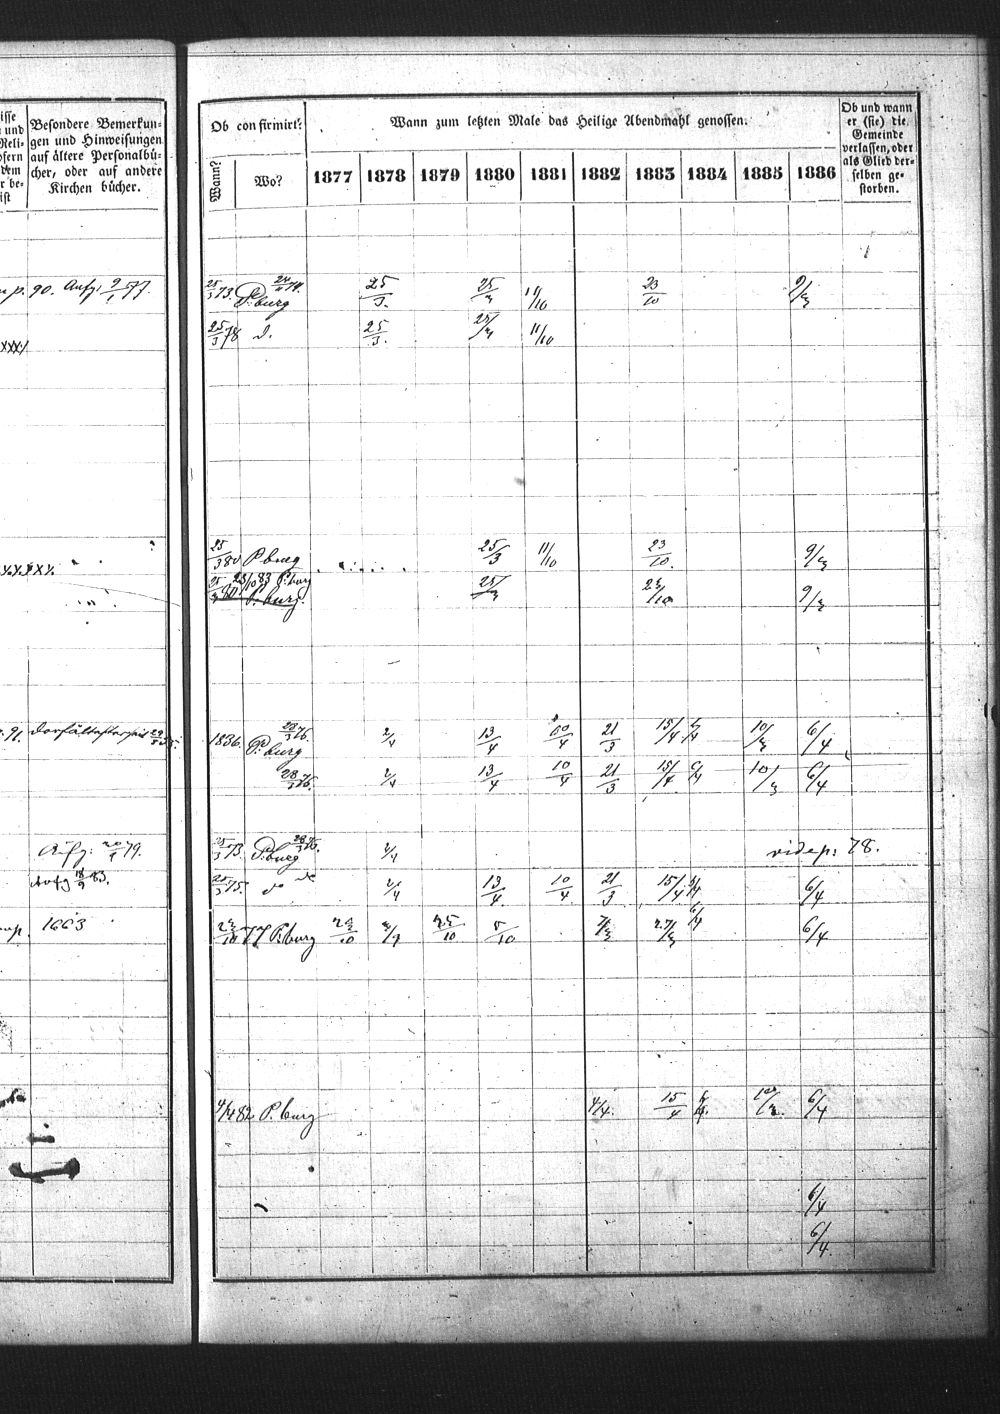 isse
und
Reli-
ofern
dem
r be-
ist
Besondere Bemerkun-
gen und Hinweisungen
auf ältere Personalbü-
cher, oder auf andere
Kirchen bücher.
Ob confirmirt?
Wann?
Wo?
Wann zum letzten Male das Heilige Abendmahl genossen.
1877 1878 1879 1880 1881 1882 1883 1884 1885 1886
Ob und wann
er (sie) die
Gemeinde
verlassen, oder
als Glied der-
selben ge-
storben.
p. 90. Aufg: 9/1 77. 25/3 73. P. burg 25/3. 25/3 11/10 23/10 9/3
xxx/ 25/3 78 d. 25/3. 25/3 11/10
25/3 80 P. burg 25/3 11/10 23/10. 9/3
25/3 80 23/10 83 P. burg 25/3 23/10 9/3
P. burg.
91. 1836. 28/3 76. P. burg 2/4 13/4 10/4 21/3 15/4 10/3 6/4
28/3 76. 2/4 13/4 10/4 21/3 15/4 10/3 6/4
Aufg: 20/1 79. 25/3 73. P. burg 28/3 76. 2/4 vide p: 78.
Aufg 18/9 83. 25/3 75. do do 2/4 13/4 10/4. 21/3 15/4 6/4
p. 1663 23/10 77 P. burg 23/10 25/10 5/10 7/3 27/3 6/4 6/4
4/4 82 P. burg 4/4. 15/4 10/3. 6/4
6/4
6/4.